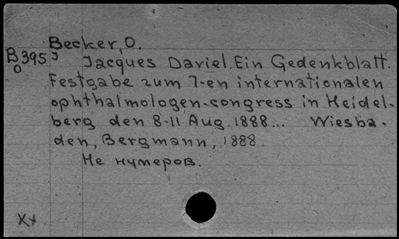 Becker, O.
B395
O
Jacques Daviel. Ein Gedenkblatt.
Festgabe zum 7-en internationalen
ophthalmologen-congress in Heidel-
berg den 8-11 Aug. 1888... Wiesba-
den, Bergmann, 1888.
Не нумеров.
XX